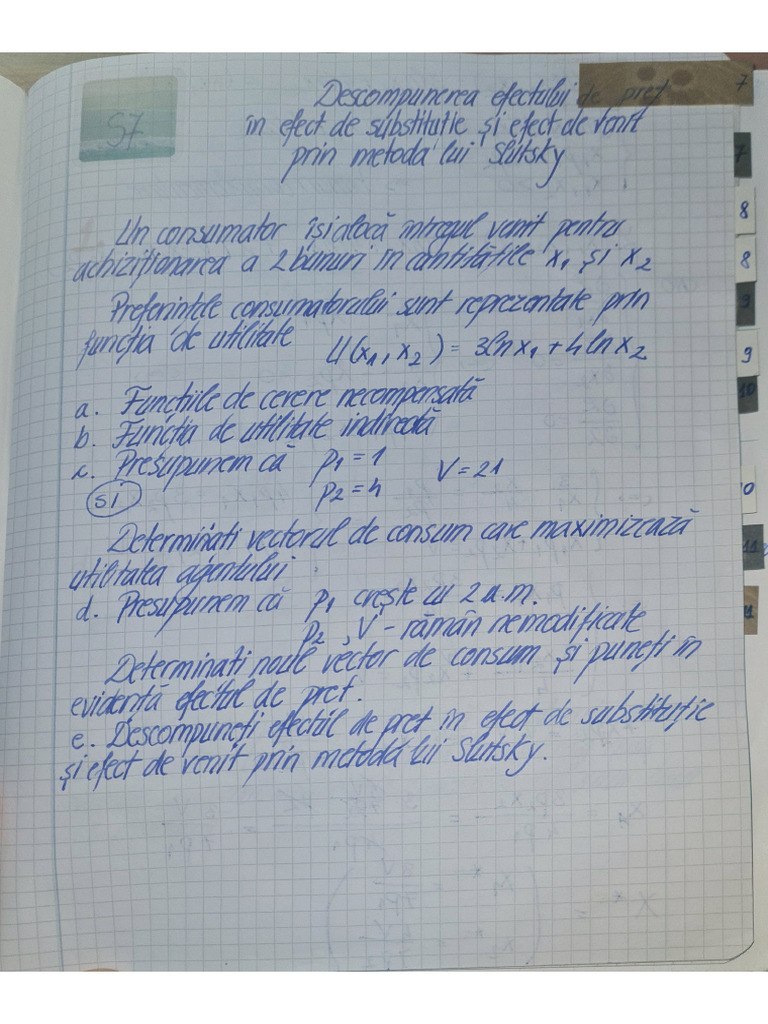 S7.
Descompunerea efectului de preț
în efect de substituție și efect de venit
prin metoda lui Slutsky
Un consumator își alocă întregul venit pentru
achiziționarea a 2 bunuri în cantitățile x₁ și x₂
Preferințele consumatorului sunt reprezentate prin
funcția de utilitate U(x₁, x₂) = 3lnx₁ + 4lnx₂
a. Funcțiile de cerere necompensată
b. Funcția de utilitate indirectă
c. Presupunem că p₁ = 1 V = 21
si p₂ = 4
Determinați vectorul de consum care maximizează
utilitatea agentului
d. Presupunem că p₁ crește cu 2 u.m.
p₂, V - rămân nemodificate
Determinați noul vector de consum și puneți în
evidență efectul de preț.
e. Descompuneți efectul de preț în efect de substituție
și efect de venit prin metoda lui Slutsky.
7
7
8
8
9
9
10